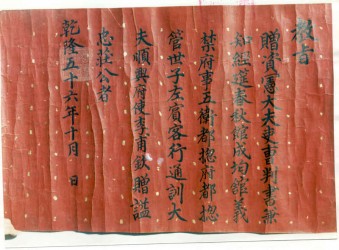 教旨
贈資憲大夫吏曹判書兼
知經筵春秋館成均館義
禁府事五衛都摠府都摠
管世子左賓客行通訓大
夫順興府使李甫欽贈諡
忠莊公者
乾隆五十六年十月 日